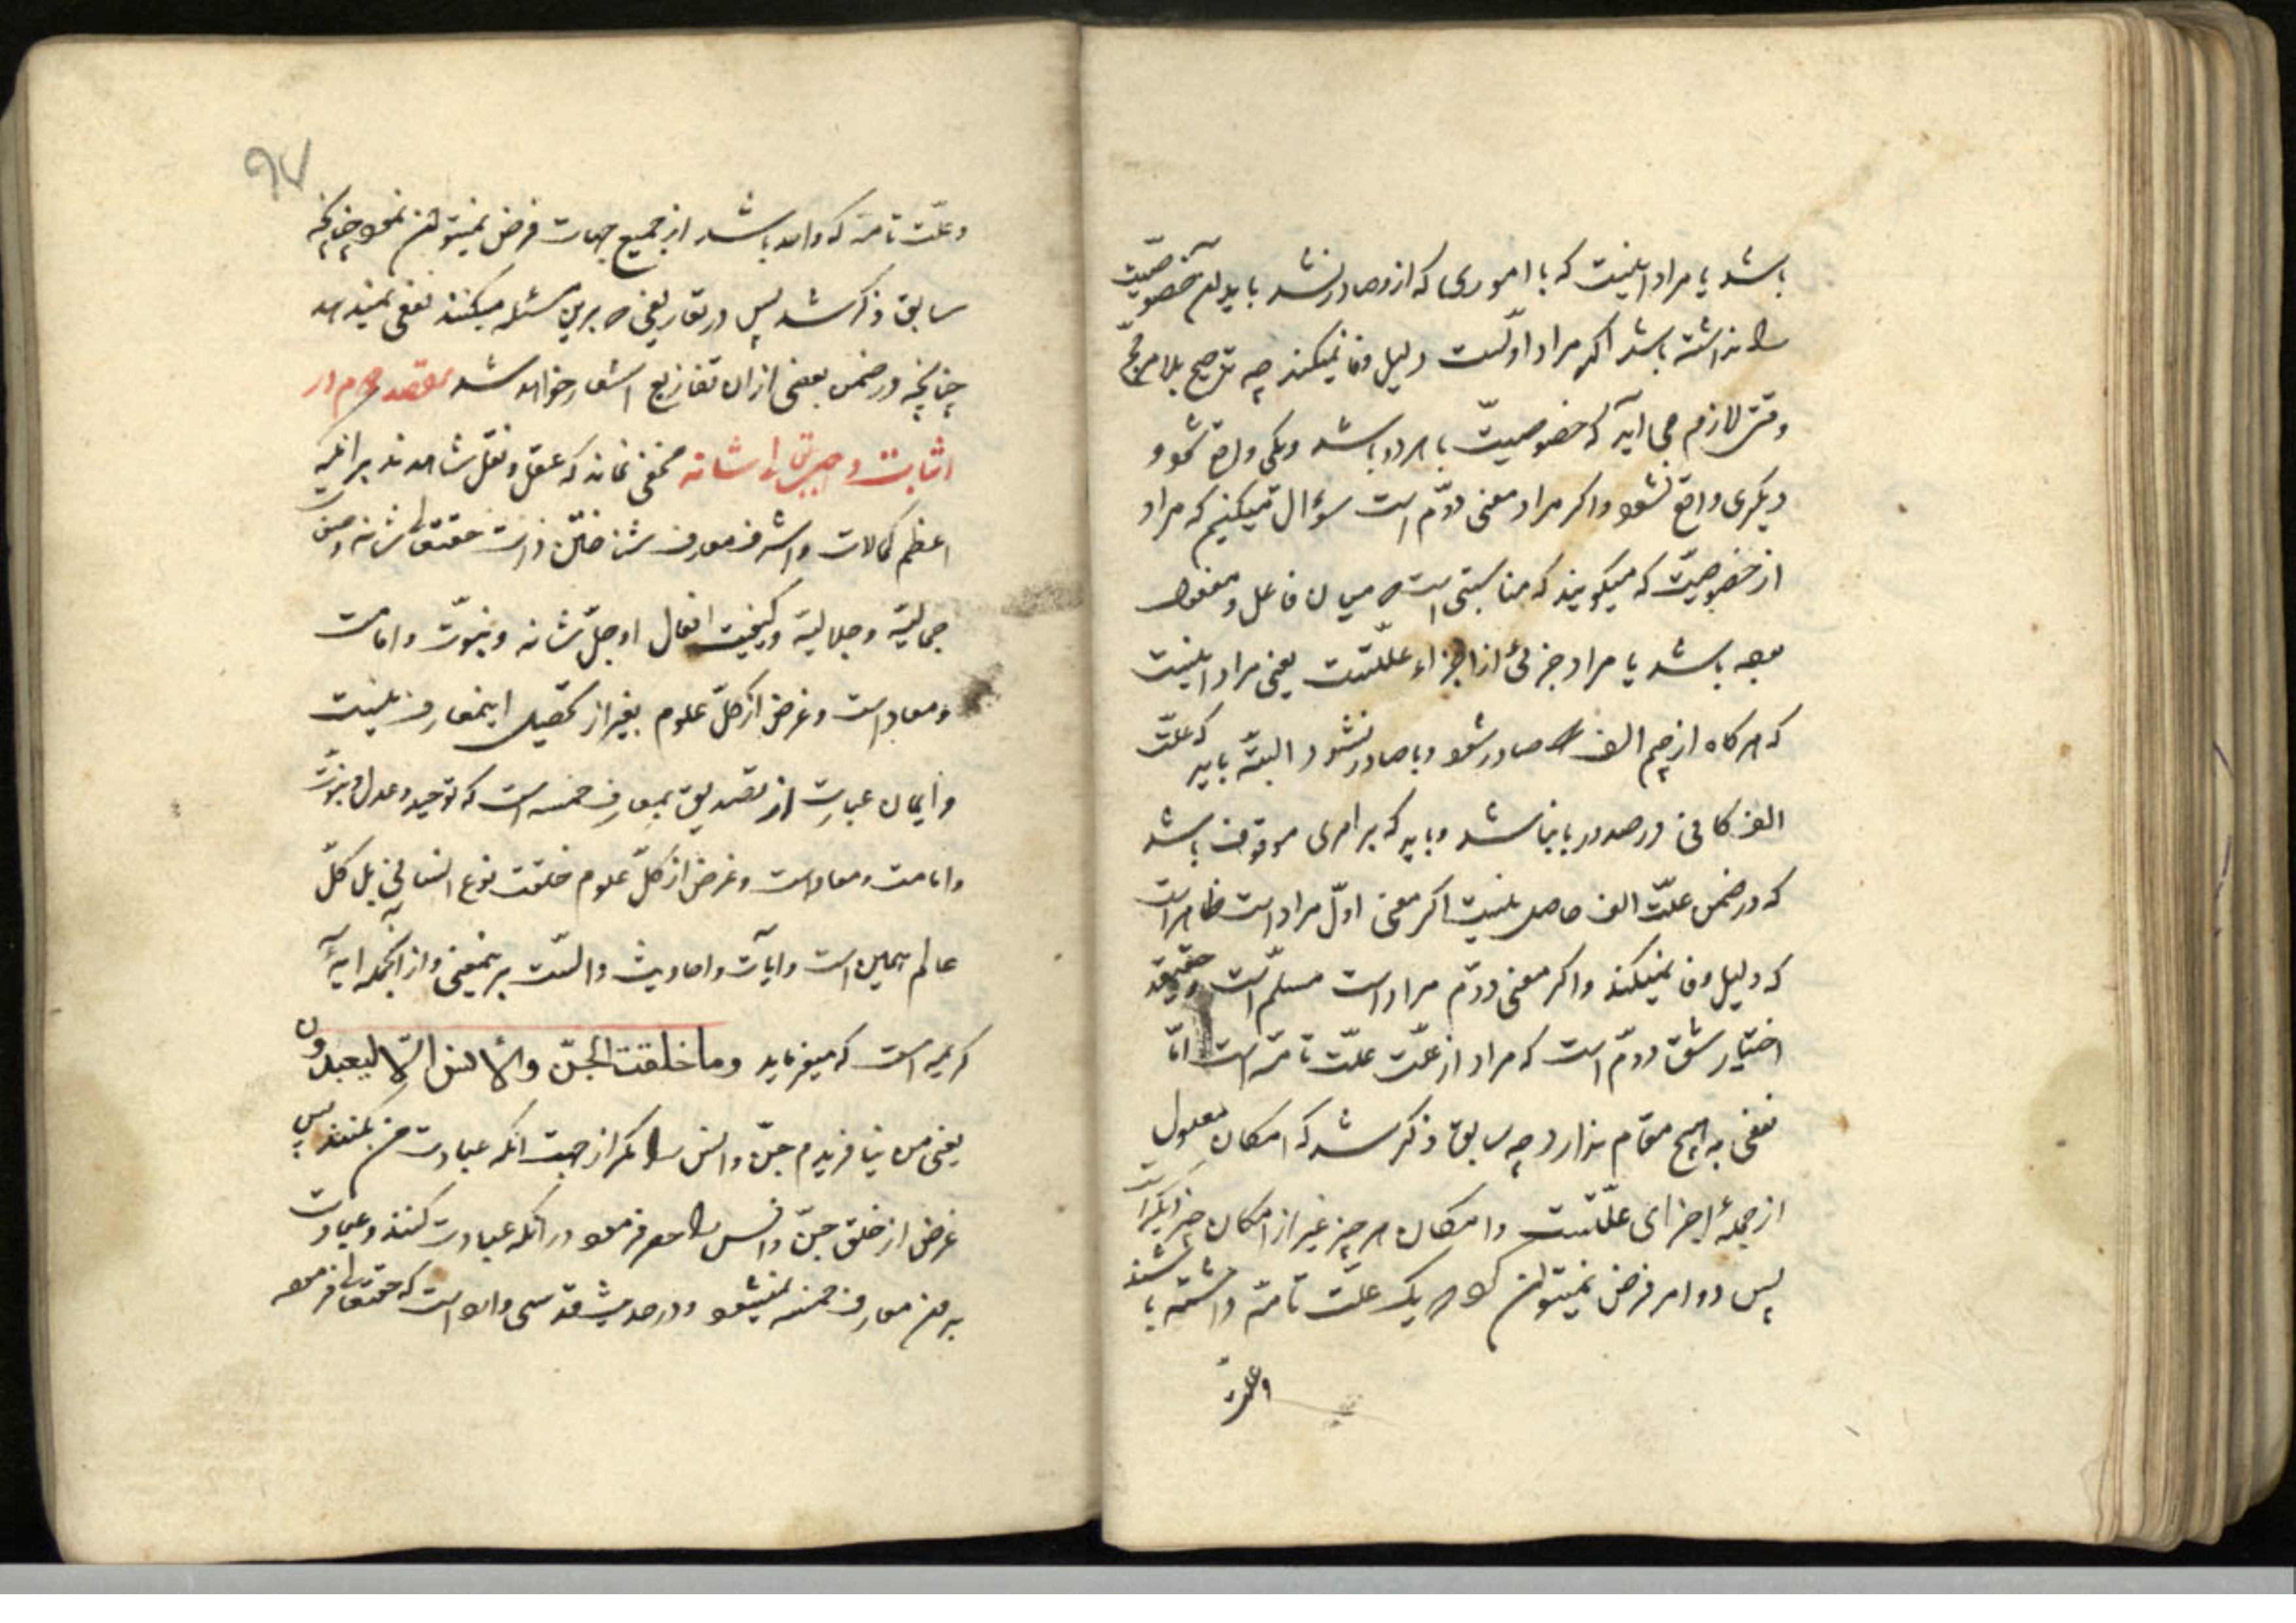 باشد یا مراد اینست که با اموری که ازو صادر نشد باید این خصوصیت
را نداشته باشد اگر مراد اولست دلیل وفا نمیکند چه ترجیح بلا مرجح
وقتی لازم می آید که خصوصیت با هر دو باشد ویکی واقع شود و
دیکری واقع نشود واکر مراد معنی دوّم است سؤال میکنیم که مراد
از خصوصیت که میکویند که مناسبتی است میان فاعل و مفعول
بوده باشد یا مراد جزئی از اجزاء علتست یعنی مراد اینست
که هرکاه از جیم الف صادر شود وبا صادر نشود البتّه باید که علّت
الف کافی در صدور با نباشد وباید که بر امری موقوف باشد
که در ضمن علّت الف حاصل نیست اکر معنی اوّل مراد است ظاهر است
که دلیل وفا نمیکند واکر معنی دوّم مراد است مسلّم است
اختیار شق دوّم است که مراد از علّت علّت تامّه است امّا
نفعی به هیچ مقام ندارد چه سابق ذکر شد که امکان معلول
از جملهٔ اجزای علّتست وامکان هر چیز غیر از امکان چیز دیگر است
پس دو امر فرض نمیتوان کرد که یک علّت تامّه داشته باشند
وعلّت
۹۷
وعلّت تامّه که واحد باشد از جمیع جهات فرض نمیتوان نمود چنانچه
سابق ذکر شد پس در تفاریعی که برین مسئله میکنند نفعی نمیدهد
چنانچه در ضمن بعضی از ان تفاریع اشعار خواهد شد مقصد دوم در
اثبات واجب تعالی شانه مخفی نماند که عقل ونقل شاهدند بر انکه
اعظم کمالات واشرف معارف شناختن ذات حقتعالی شانه وصفات
جمالیّه وجلالیّه وکیفیت افعال او جلّ شانه ونبوّت وامامت
ومعاد است وغرض از کلّ علوم بغیر از تحصیل اینمعارف نیست
وایمان عبارت از تصدیق بمعارف خمسه است که توحید وعدل ونبوّت
وامامت ومعاد است وغرض از کلّ علوم خلقت نوع انسانی بل کلّ
عالم همین است وآیات واحادیث دالست برینمعنی واز آنجمله آیهٔ
کریمه است که میفرماید وما خلقت الجنّ والأنس الّا لیعبدون
یعنی من نیافریدم جنّ وانس را مکر از جهت انکه عبادت من بکنند پس
غرض از خلق جنّ وانس را حصر فرمود در انکه عبادت کنند وعبادت
بدون معارف خمسه نمیشود ودر حدیث قدسی وارد است که حقتعالی فرمود